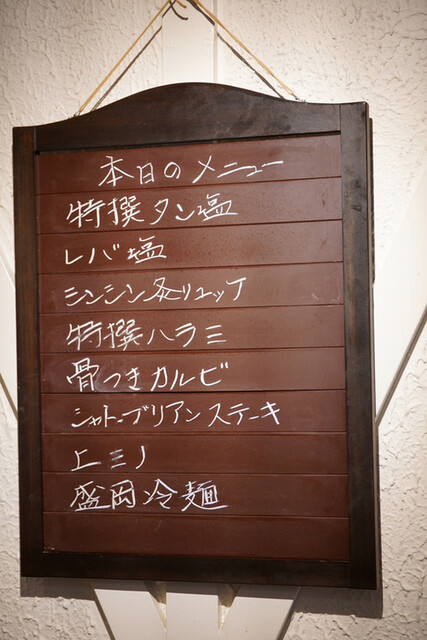 本日のメニュー
特撰タン塩
レバ塩
シンシン炙リユッケ
特撰ハラミ
骨つきカルビ
シャトーブリアンステーキ
上ミノ
盛岡冷麺